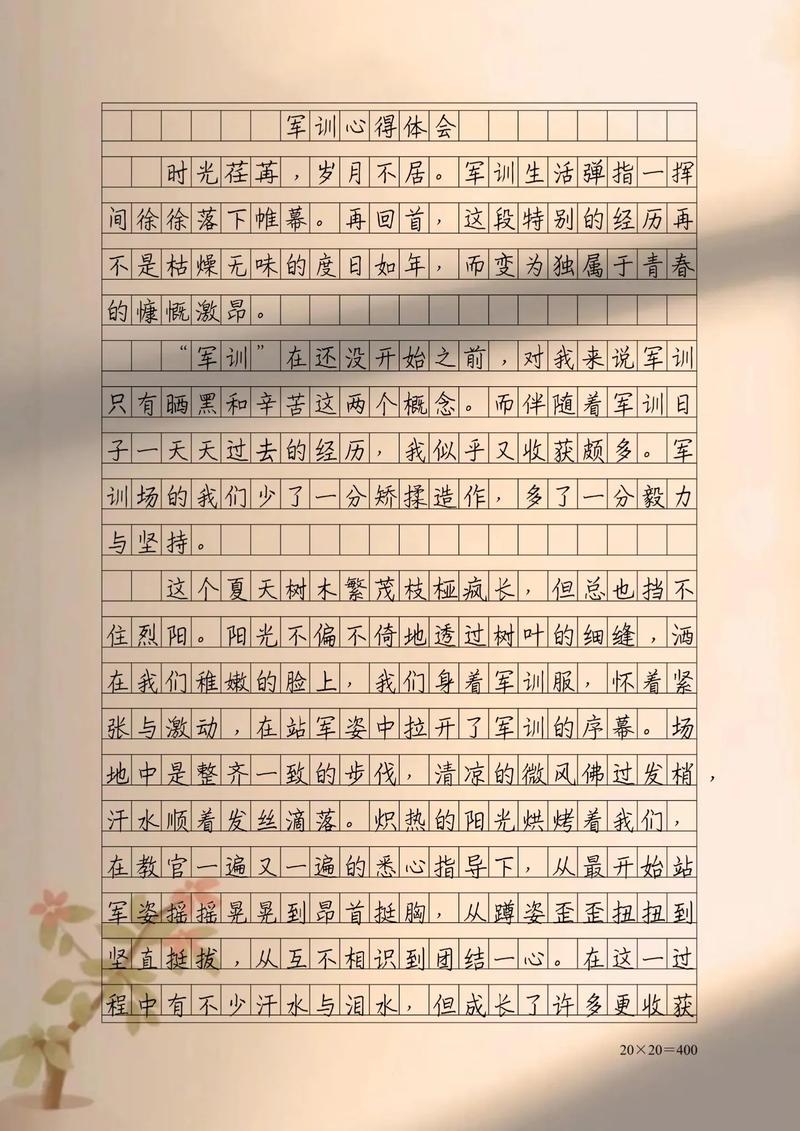 军训心得体会
时光荏苒，岁月不居。军训生活弹指一挥
间徐徐落下帷幕。再回首，这段特别的经历再
不是枯燥无味的度日如年，而变为独属于青春
的慷慨激昂。
“军训”在还没开始之前，对我来说军训
只有晒黑和辛苦这两个概念。而伴随着军训日
子一天天过去的经历，我似乎又收获颇多。军
训场的我们少了一分矫揉造作，多了一分毅力
与坚持。
这个夏天树木繁茂枝桠疯长，但总也挡不
住烈阳。阳光不偏不倚地透过树叶的细缝，洒
在我们稚嫩的脸上，我们身着军训服，怀着紧
张与激动，在站军姿中拉开了军训的序幕。场
地中是整齐一致的步伐，清凉的微风佛过发梢，
汗水顺着发丝滴落。炽热的阳光烘烤着我们，
在教官一遍又一遍的悉心指导下，从最开始站
军姿摇摇晃晃到昂首挺胸，从蹲姿歪歪扭扭到
坚直挺拔，从互不相识到团结一心。在这一过
程中有不少汗水与泪水，但成长了许多更收获
20×20=400